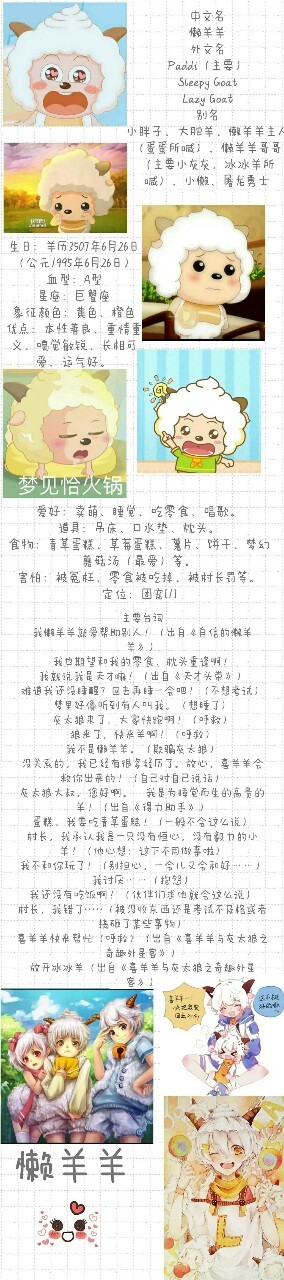 中文名
懒羊羊
外文名
Paddi（主要）
Sleepy Goat
Lazy Goat
别名
小胖子、大脸羊、懒羊羊主人
（蛋蛋所喊）、懒羊羊哥哥
（主要小灰灰、冰冰羊所
喊）、小懒、屠龙勇士
生日：羊历3507年6月26日
（公元1995年6月26日）
血型：A型
星座：巨蟹座
象征颜色：黄色、橙色
优点：本性善良、重情重
义、嗅觉敏锐、长相可
爱、运气好。
梦见恰火锅
爱好：卖萌、睡觉、吃零食、唱歌。
道具：吊床、口水垫、枕头。
食物：青草蛋糕、草莓蛋糕、薯片、饼干、梦幻
蘑菇汤（最爱）等。
害怕：被冤枉、零食被吃掉、被村长罚等。
定位：团宠[/]
主要台词
我懒羊羊就爱帮助别人！（出自《自信的懒羊
羊》）
我也期望和我的零食、枕头重逢啊！
我就说我是天才嘛！（出自《天才头带》）
难道我还没睡醒？回去再睡一会吧！（不想考试）
梦里好像听到有人叫我。（想睡了）
灰太狼来了，大家快跑啊！（呼救）
狼来了，快来羊啊！（呼救）
我不是懒羊羊。（欺骗灰太狼）
没关系的，我已经有很多经历了。放心，喜羊羊会
救你出来的！（自己对自己说话）
灰太狼大叔，您好啊。 我是为睡觉而生的高贵的
羊！（出自《得力助手》）
蛋糕，我要吃青草蛋糕！（一般不会这么说）
村长，我承认我是一只没有恒心，没有毅力的小
羊！（他心想：这下不用做事啦）
我不和你玩了！（别担心，一会儿又会和好……）
我讨厌……（抱怨）
我还没有吃饭啊！（伙伴们求他就会这么说）
村长，我错了……（被没收东西还是考试不及格或者
搞砸了某些事物）
喜羊羊快来帮忙（呼救）（出自《喜羊羊与灰太狼之
奇趣外星客》）
放开冰冰羊（出自《喜羊羊与灰太狼之奇趣外星
客》）
懒羊羊